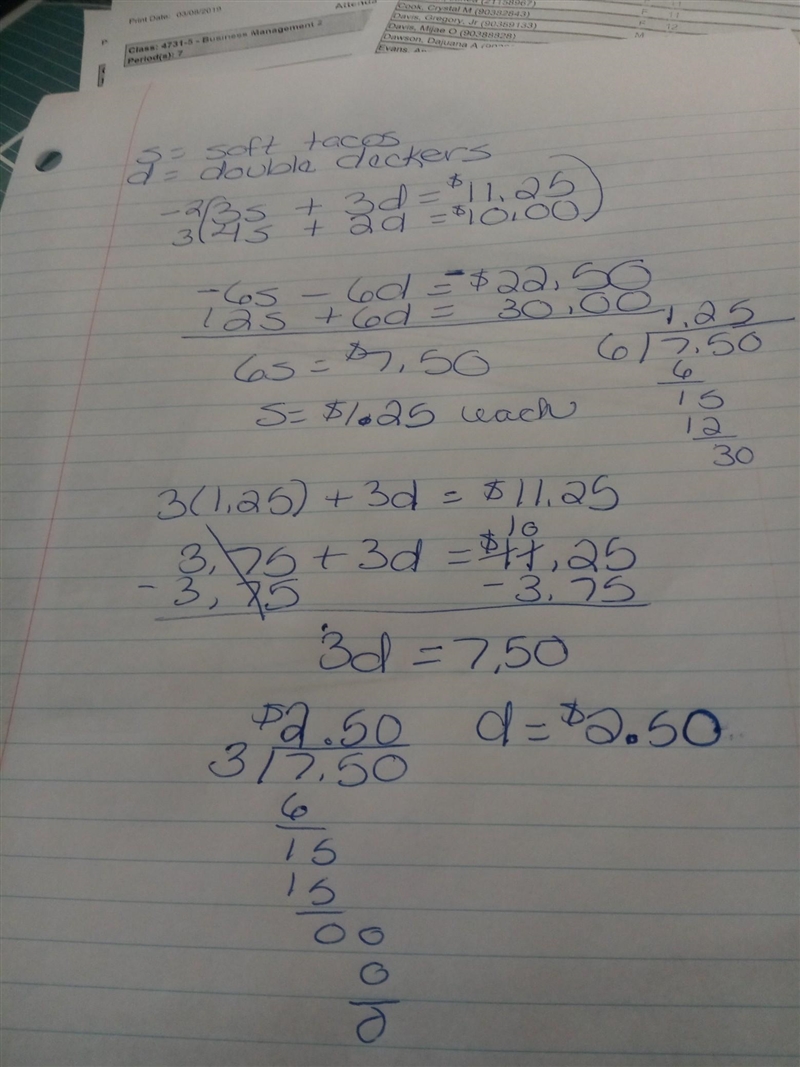 Print Date: 03/08/2019
Class: 4731-5 - Business Management 2
Period(s): 7
Cook, Crystal M (90382843)
Davis, Gregory, Jr (90389133)
Davis, Mijae O (90388828)
Dawson, Dajuana A
Evans,
s = soft tacos
d = double deckers
-2(3s + 3d = $11.25)
3(4s + 2d = $10.00)
-6s - 6d = -$22.50
12s + 6d = 30.00
6s = $7.50
s = $1.25 each
1.25
6 7.50
6
15
12
30
3(1.25) + 3d = $11.25
10
3.75 + 3d = $11.25
- 3.75 - 3.75
3d = 7.50
$2.50 d = $2.50
3 7.50
6
15
15
00
0
0